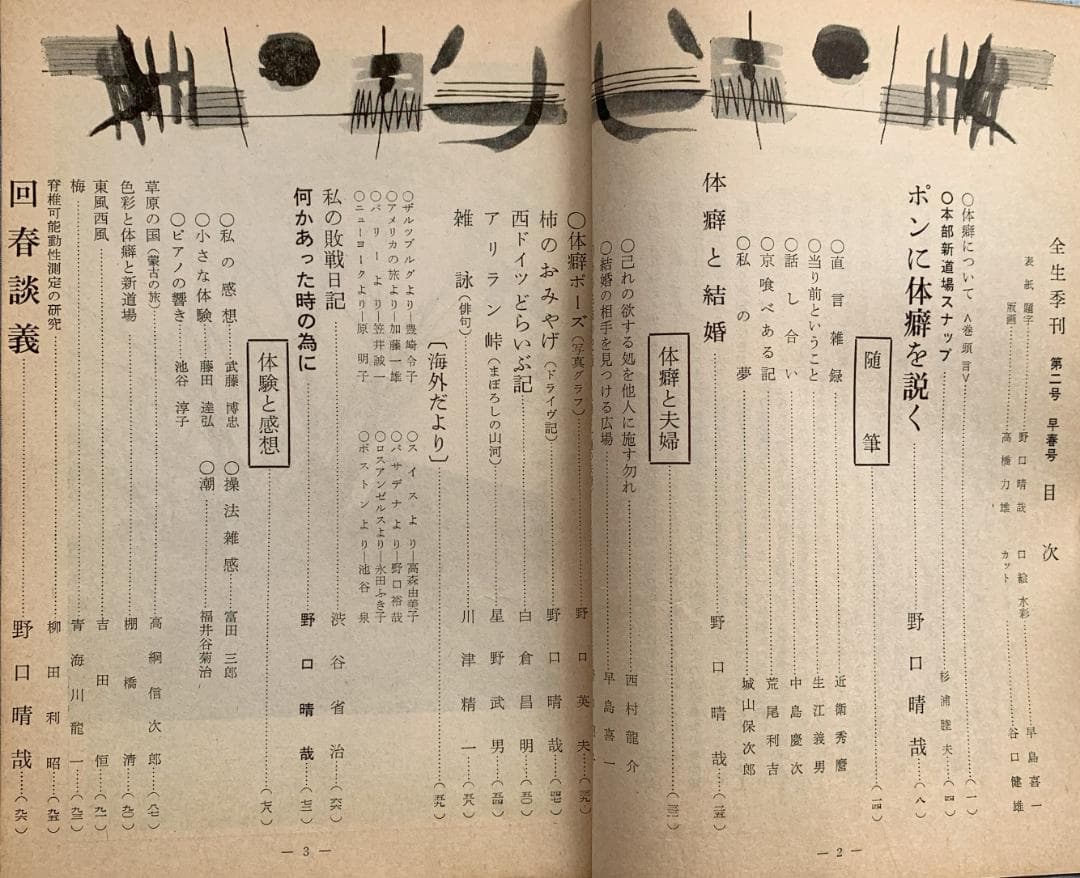 全生季刊 第二号 早春号 目次
表紙 題字……野口晴哉 口絵 水彩……早島喜一
版画……高橋力雄 カット……谷口健雄
○体癖について<巻頭言>……(一)
○本部新道場スナップ……杉浦睦夫…(四)
ポンに体癖を説く……野口晴哉……(八)
随筆……(一四)
○直言雑録……近衛秀麿
○当り前ということ……生江義男
○話し合い……中島慶次
○京喰べある記……荒尾利吉
○私の夢……城山保次郎
体癖と結婚……野口晴哉……(二五)
体癖と夫婦……(三二)
○己れの欲する処を他人に施す勿れ……西村龍介
○結婚の相手を見つける広場……早島喜一
— 2 —
○体癖ポーズ(写真グラフ)……野口英夫…(三九)
柿のおみやげ(ドライヴ記)……野口晴哉…(四七)
西ドイツどらいぶ記……白倉昌明…(五〇)
アリラン峠(まぼろしの山河)……星野武男…(五四)
雑詠(俳句)……川津精一…(五八)
〔海外だより〕……(五九)
○ザルツブルグより—豊崎令子 ○スイスより—高森由美子
○アメリカの旅より—加藤一雄 ○パサデナより—野口裕哉
○パリーより—笠井誠一 ○ロスアンゼルスより—永田ふき子
○ニューヨークより—原明子 ○ボストンより—池谷泉
私の敗戦日記……渋谷省治…(六六)
何かあった時の為に……野口晴哉…(七三)
体験と感想……(七八)
○私の感想……武藤博忠 ○操法雑感……富田三郎
○小さな体験……藤田達弘 ○潮……福井谷菊治
○ピアノの響き……池谷淳子
草原の国(蒙古の旅)……高綱信次郎…(八七)
色彩と体癖と新道場……棚橋清…(九〇)
東風西風……吉田恒…(九一)
梅……青海川龍一…(九三)
脊椎可能動性測定の研究……柳田利昭…(九五)
回春談義……野口晴哉…(九六)
— 3 —